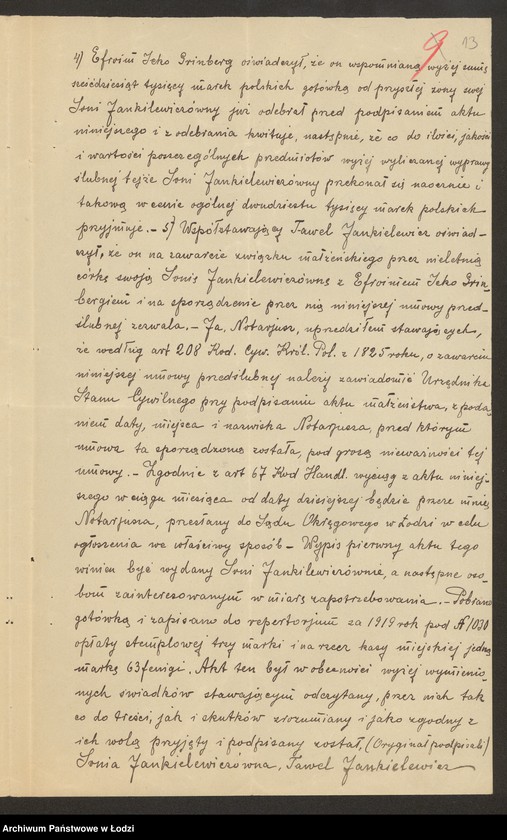 9 13
4) Efroim Icko Grinberg oświadczył, że on wspomnianą wyżej sumę
sześćdziesiąt tysięcy marek polskich gotówką od przyszłej żony swej
Soni Jankielewiczówny już odebrał przed podpisaniem aktu
niniejszego i z odebrania kwituje, następnie, że co do ilości, jakości
i wartości poszczególnych przedmiotów wyżej wyliczanej wyprawy
ślubnej tejże Soni Jankielewiczówny przekonał się naocznie i
takową w cenie ogólnej dwudziestu tysięcy marek polskich
przyjmuje. - 5) Współstawający Pawel Jankielewicz oświad-
czył, że on na zawarcie związku małżeńskiego przez nieletnią
córkę swoją Sonię Jankielewiczówną z Efroimem Icko Grin-
bergiem i na sporządzenie przez nią niniejszej umowy przed-
ślubnej zezwala. - Ja, Notarjusz, uprzedziłem stawających,
że według art 208 Kod. Cyw. Król. Pol. z 1825 roku, o zawarciu
niniejszej umowy przedślubnej należy zawiadomić Urzędnika
Stanu Cywilnego przy podpisaniu aktu małżeństwa, z poda-
niem daty, miejsca i nazwiska Notarjusza, przed którym
umowa ta sporządzona została, pod grozą nieważności tej
umowy. - Zgodnie z art 67 Kod Handl. wyciąg z aktu niniej-
szego w ciągu miesiąca od daty dzisiejszej będzie przeze mnie,
Notarjusza, przesłany do Sądu Okręgowego w Łodzi w celu
ogłoszenia we właściwy sposób - Wypis pierwszy aktu tego
winien być wydany Soni Jankielewiczównie, a następne oso-
bom zainteresowanym w miarę zapotrzebowania. - Pobrano
gotówką i zapisano do repertorjum za 1919 rok pod № 1030
opłaty stemplowej trzy marki i na rzecz kasy miejskiej jedną
markę 63 fenigi. Akt ten był w obecności wyżej wymienio-
nych świadków stawającym odczytany, przez nich tak
co do treści, jak i skutków zrozumiany i jako zgodny z
ich wolą przyjęty i podpisany został. (Oryginał podpisali)
Sonia Jankielewiczówna, Pawel Jankielewicz
Archiwum Państwowe w Łodzi